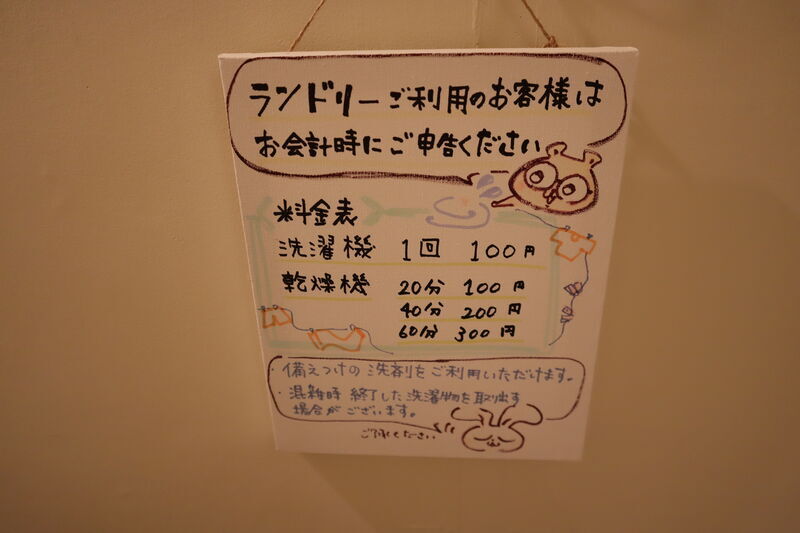 ランドリーご利用のお客様は
お会計時にご申告ください
料金表
洗濯機 1回 100円
乾燥機 20分 100円
40分 200円
60分 300円
・備えつけの洗剤をご利用いただけます。
・混雑時 終了した洗濯物を取出す
場合がございます。
ご了承ください